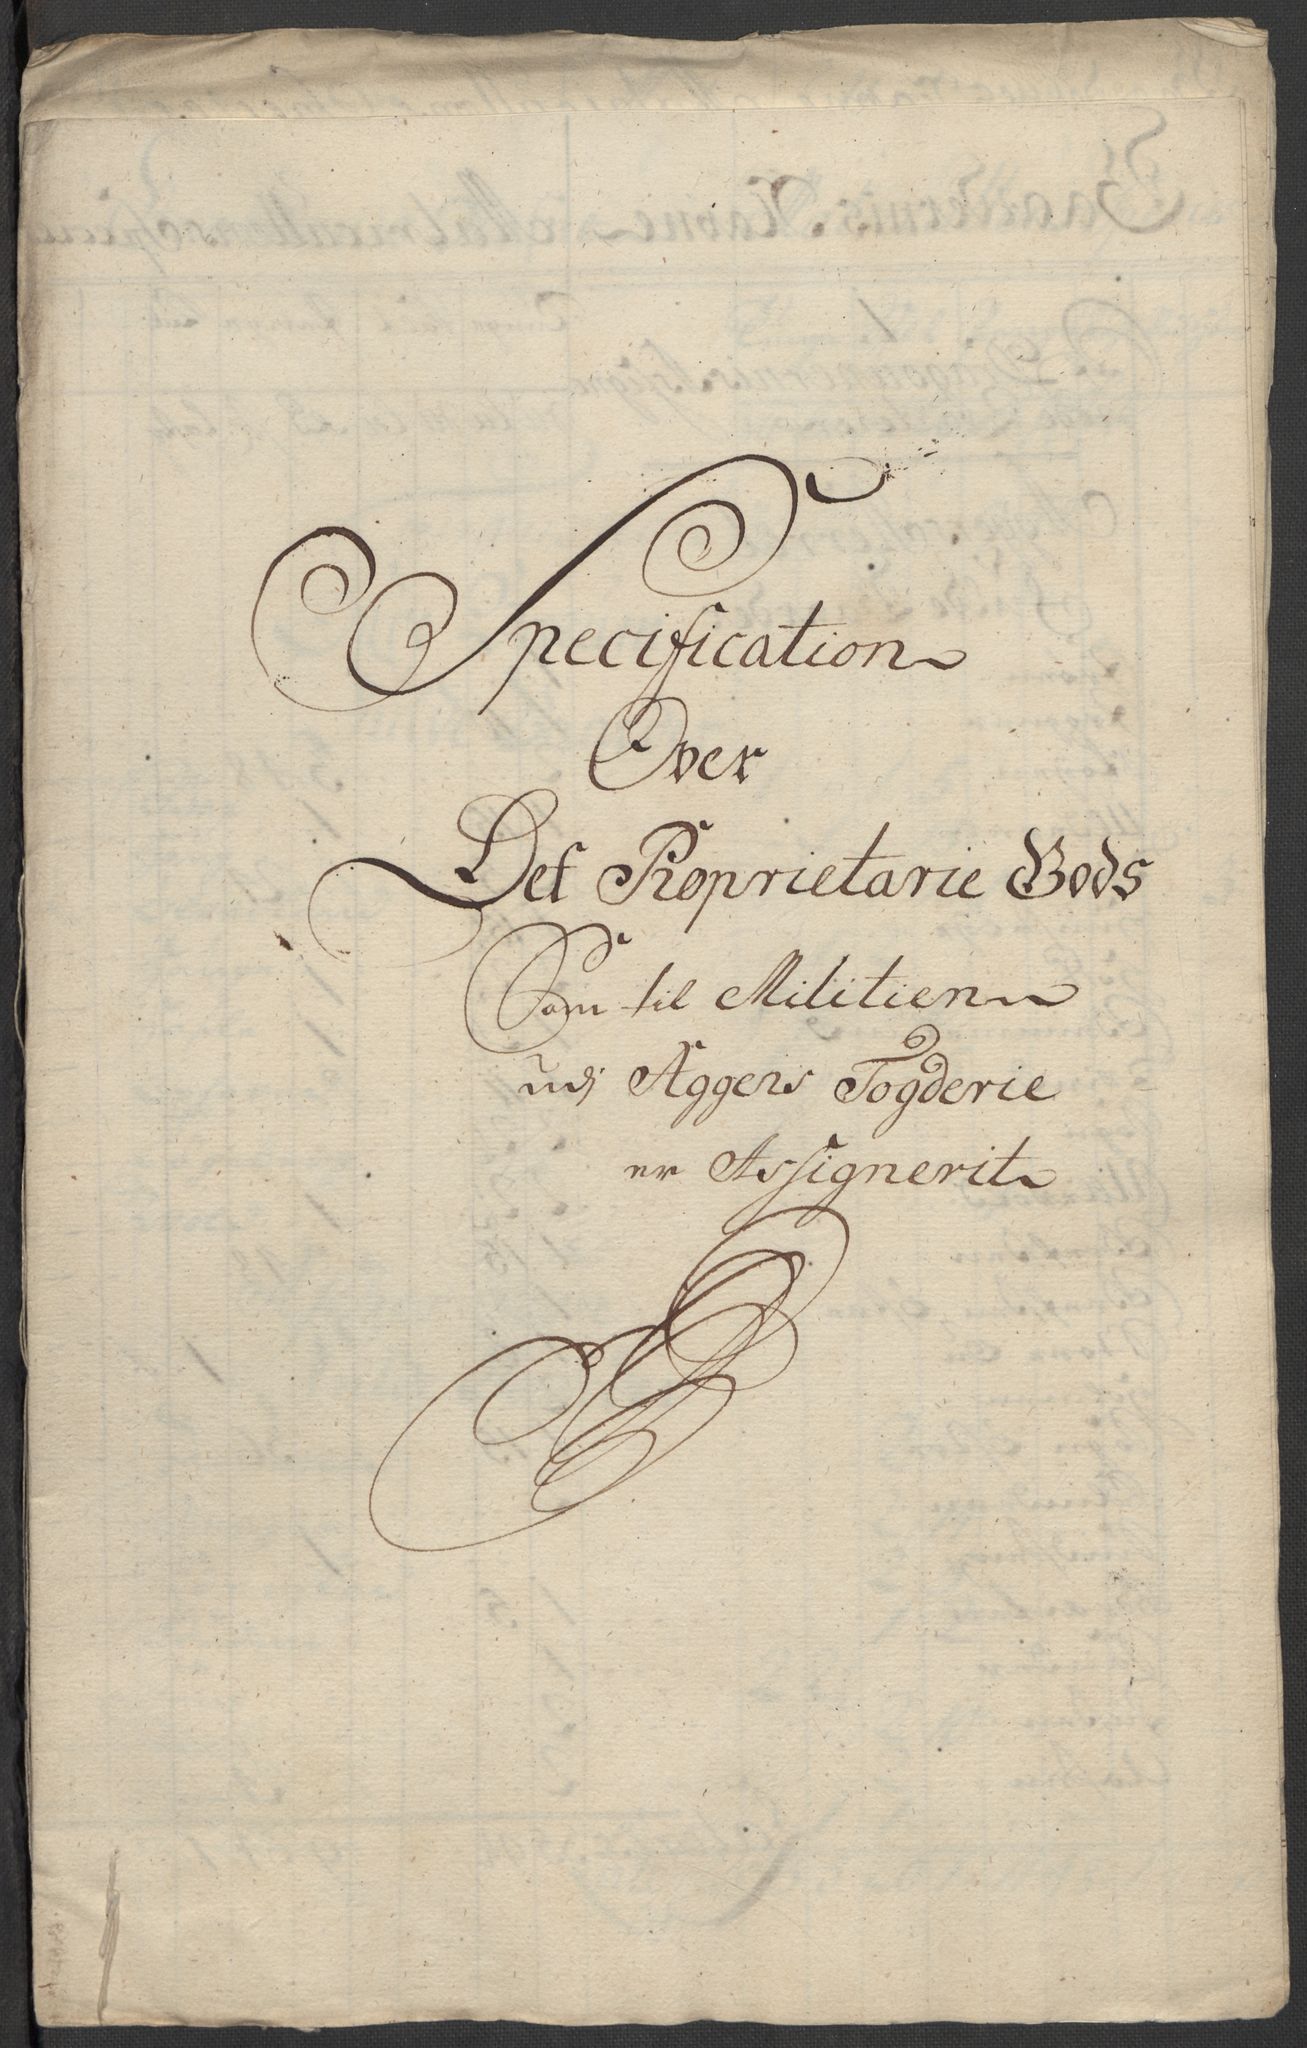 Specification
Over
Det Proprietarie Gods
Som til Militien
udj Aggers Fogderie
er Assignerit